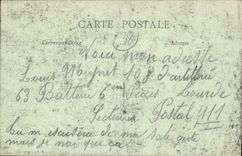 CARTE POSTALE
Correspondance Adresse
Voici mon adresse
Louis 108 d'artillerie
63 Batterie 6em Pièces Lourde
Secteur Postal 111
Tu m ma
mais je n'ai que ça